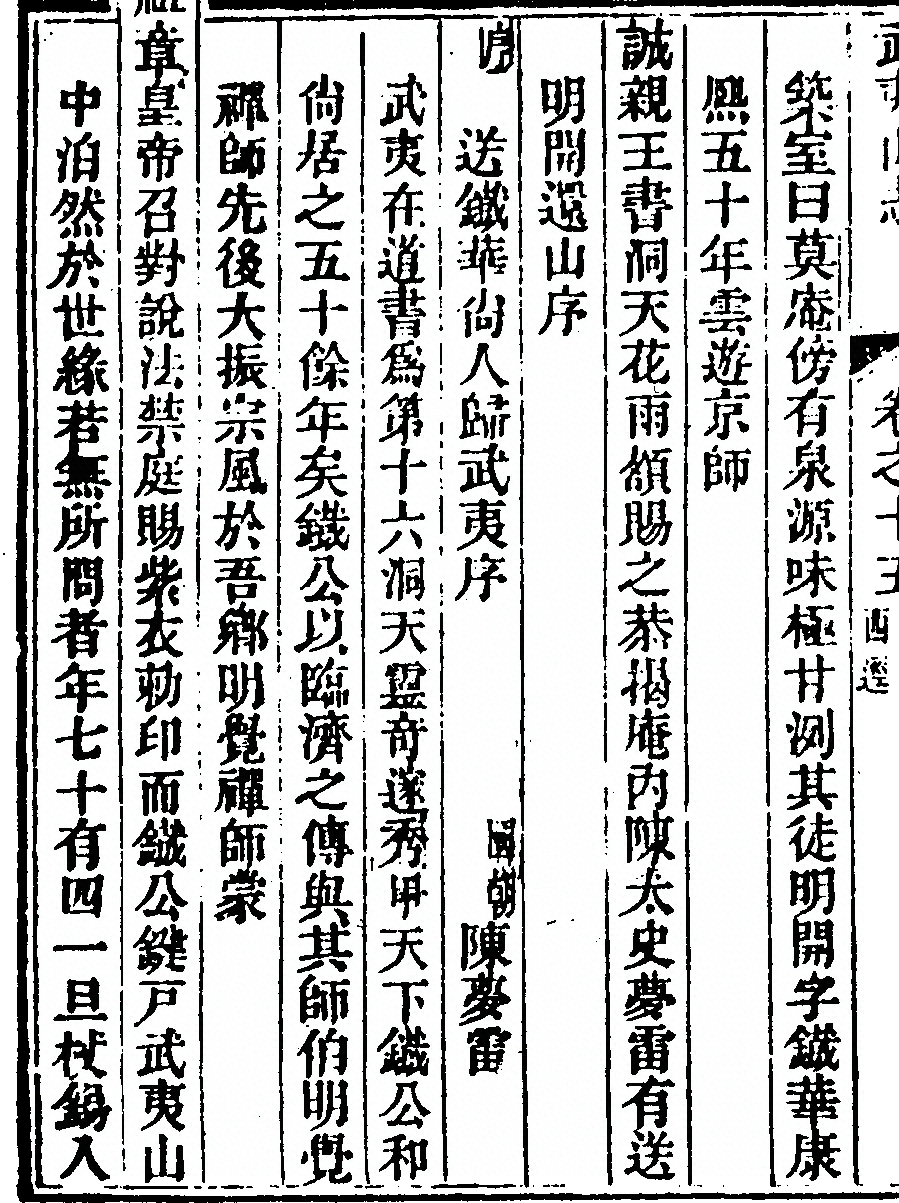 築室曰莫庵傍有泉源味極甘洌其徒明開字鐵華康
熙五十年雲遊京師
誠親王書洞天花雨額賜之恭揭庵內陳太史夢雷有送
明開還山序
送鐵華尙人歸武夷序 國朝陳夢雷
武夷在道書爲第十六洞天靈奇邃秀甲天下鐵公和
尙居之五十餘年矣鐵公以臨濟之傳與其師伯明覺
禪師先後大振宗風於吾鄉明覺禪師蒙
章皇帝召對說法禁庭賜紫衣勅印而鐵公鍵戸武夷山
中泊然於世緣若無所問者年七十有四一旦杖錫入